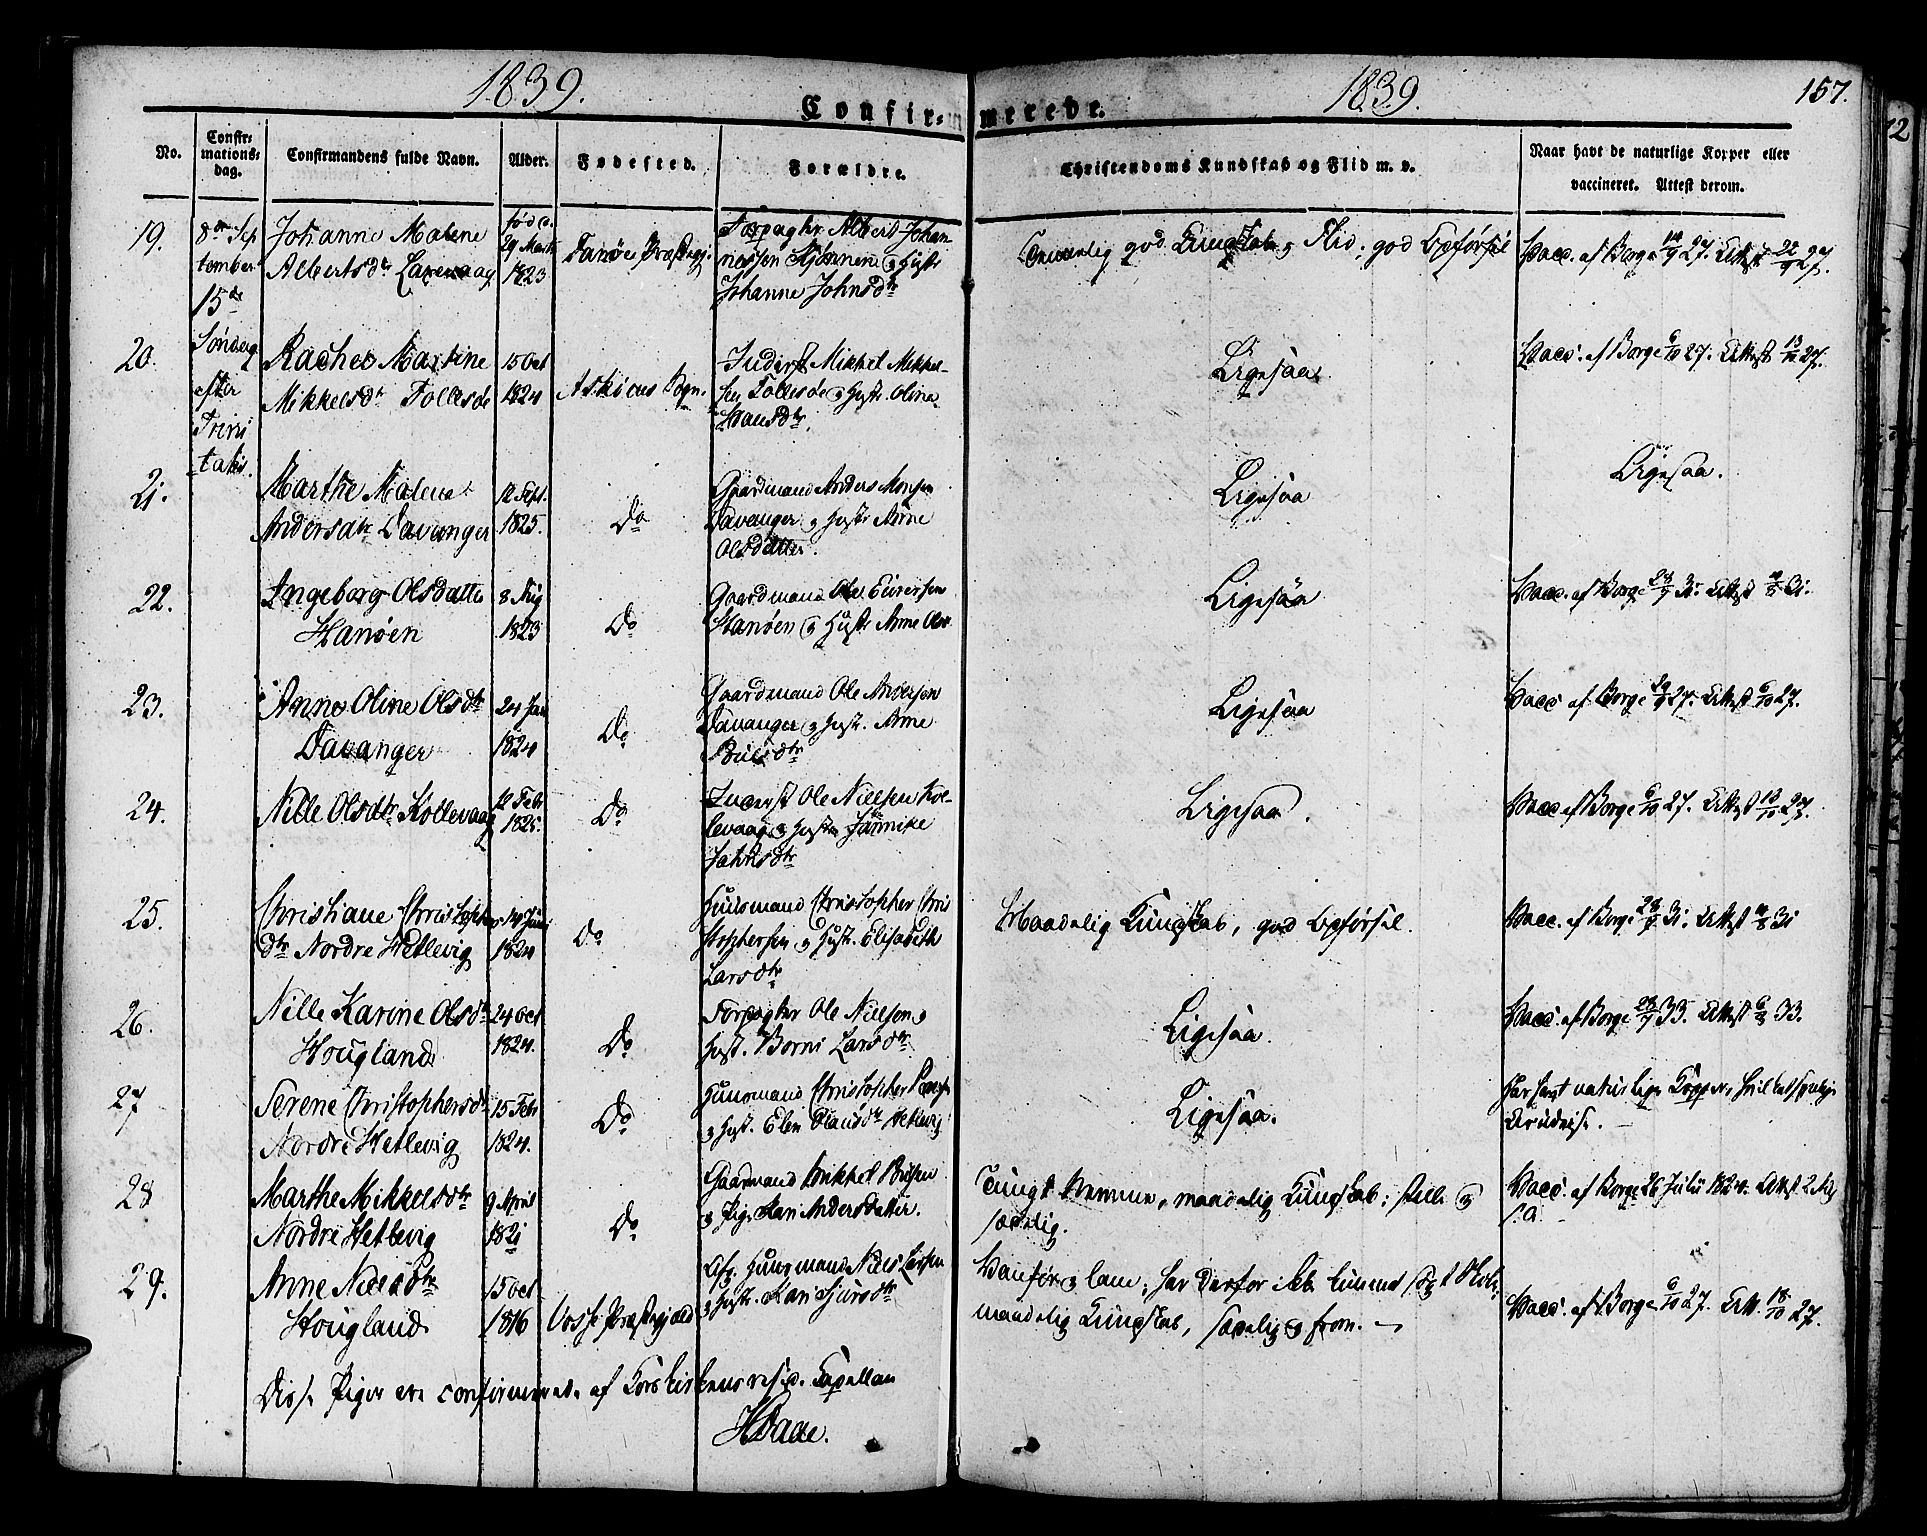 1839.
1839.
157.
Confirmerede.
No.
Confirmations-dag.
Confirmandens fulde Navn.
Alder.
Fødested.
Forældre.
Christendoms Kundskab og Flid m. v.
Naar havt de naturlige Kopper eller
vaccineret. Attest derom.
19.
8de Sep
tember
15de
Søndag
efter
Trini
tatis.
Johanne Malene
Albertsdtr
født d.
29 Marts
1823
Fanøe Præstegj.
Forpagter Albert Johan-
nessen og Hustr.
Johanne Johnsdtr
Temmelig god Kundskab og Flid; god Opførsel
Vacc. af Borge 27. Attest 22/9 27.
20.
Rachel Martine
Mikkelsdtr Follesøe
15 Oct
1824
Askøens Sogn.
Inderst Mikkel Mikkel-
sen Follesøe og Hustr. Olina
Hansdtr.
Ligesaa
Vacc. af Borge 6/10 27. Attest 13/10 27.
21.
Marthe Malene
Andersdtr Davanger
12 Sept.
1825.
Do
Gaardmand Anders Monsen
Davanger og Hustr Anne
Olsdatter.
Ligesaa
Ligesaa.
22.
Ingeborg Olsdatter
Hanøen
8 Aug
1823
Do
Gaardmand Ole Eiversen
Hanøen og Hustr. Anne Olsd.
Ligesaa
Vacc. af Borge 31. Attest 31.
23.
Anne Oline Olsdtr
Davanger
24 Jan
1824
Do
Gaardmand Ole Andersen
Davanger og Hustr. Anne
Nilsdtr
Ligesaa
Vacc. af Borge 29/9 27. Attest 6/10 27.
24.
Nille Olsdtr Kollevaag
12 Febr
1825.
Do
Inderst Ole Nielsen Kol-
levaag og Hustr Jannike
Jahnsdtr
Ligesaa.
Vacc af Borge 6/10 27. Attest 13/10 27.
25.
Christiane Christophers
dtr Nordre Hetlevig
14 Juni
1824
Do
Huusmand Christopher Chris
stophersen og Hustr. Elisabeth
Larsdtr
Maadelig Kundskab, god Opførsel.
Vacc. af Borge 31. Attest 31
26.
Nille Karine Olsdtr
Hougland
24 Oct
1824.
Do
Forpagter Ole Nielsen og
Hust. Borni Larsdtr
Ligesaa.
Vacc. af Borge 33. Attest 33.
27
Serene Christophersdtr
Nordre Hetlevig
15 Febr
1824.
Do
Huusmand Christopher
og Hust. Elen Olausdtr Hetlevig
Ligesaa.
Har havt naturlige Kopper, hvilket Synligen
Udviser.
28
Marthe Mikkelsdtr
Nordre Hetlevig
9 April
1821
Do
Gaardmand Mikkel Nilsen
og Pige Kari Andersdatter.
Tungt Nemme, maadelig Kundskab; stille og
sædelig.
Vacc. af Borge 26 Julii 1824. Attest 2 Aug
s. a.
29.
Anne Nielsdtr
Hougland
15 Oct
1816
Vosse Præstegjæld
Afg. Huusmand Niels Larsen
og Hustr. Kari Sjursdtr
Vanfør og lam; har derfor ikke kunnet søgt Skole;
maadelig Kundskab, sædelig og from.
Vacc. af Borge 6/10 27. Att. 18/10 27.
Disse Piger ere confirmerede af Korskirkens resid. Capellan
HDaae.